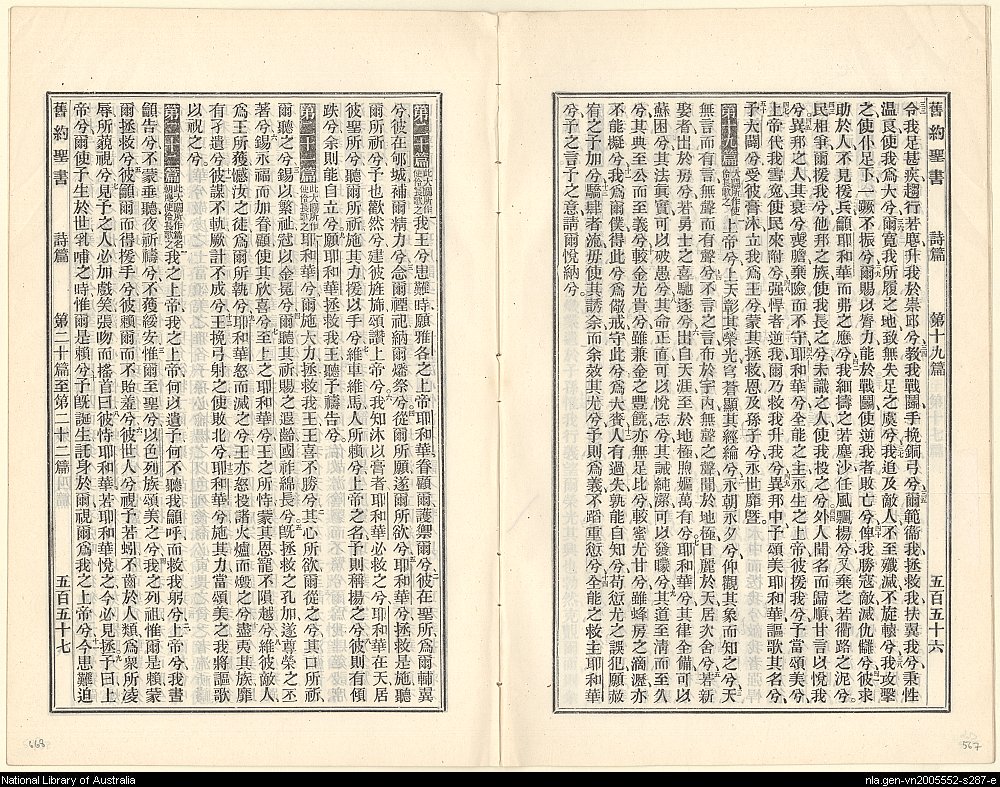 舊約聖書 詩篇 第十九篇 五百五十六
令我足甚疾趨行若麀升我於崇邱兮教我戰鬬手挽銅弓兮爾範衞我拯救我扶翼我兮秉性
温良使我爲大兮爾寬我所履之地致無失足之虞兮我追及敵人不至殲滅不旋轅兮我攻擊
之使仆足下一蹶不振兮爾賜以膂力能於戰鬬使逆我者敗亡兮俾我勝寇敵滅仇讎兮彼求
助於人不見援兵籲耶和華而弗之應兮我細擣之若塵沙任風飄揚兮又棄之若衢路之泥兮
民相爭爾援我兮他邦之族使我長之兮未識之人使我投之兮外人聞名而歸順甘言以悅我
兮異邦之人其衰兮喪膽棄險而不守耶和華兮全能之主永生之上帝彼援我兮予當頌美兮
上帝代我雪冤使民來附兮强悍者逆我爾乃救我升我兮異邦中予頌美耶和華謳歌其名兮
予大闢兮受彼膏沐立我爲王兮蒙其拯救恩及孫子兮永世靡曁
第十九篇 大闢所作使伶長歌之 上帝兮上天彰其榮光穹蒼顯其經綸兮永朝永夕兮仰觀其象而知之兮天
無言而有言無聲而有聲兮不言之言布於宇內無聲之聲聞於地極日麗於天居次舍兮若新
娶者出於房兮若勇士之喜馳逐兮出自天涯至於地極煦嫗萬有兮耶和華兮其律全備可以
蘇困兮其法眞實可以破愚兮其命正直可以悅志兮其誡純潔可以發矇兮其道至清而至久
兮其典至公而至義兮較金尤貴兮雖兼金之豐饒亦無足比兮較蜜尤甘兮雖蜂房之滴瀝亦
不能擬兮我爲爾僕得此兮爲儆戒守此兮爲大賚人有過失孰能自知兮苟愆尤之誤犯願赦
宥之予加兮驕肆者流毋使其誘余而余效其尤兮予則爲義不蹈重愆兮全能之救主耶和華
兮予之言予之意請爾悅納兮
567
第二十篇 此大闢所作使伶長歌之 我王兮患難時願雅各之上帝耶和華眷顧爾護禦爾兮彼在聖所爲爾輔翼
兮彼在郇城補爾精力兮念爾禋祀納爾燔祭兮從爾所願遂爾所欲兮耶和華兮拯救是施聽
爾所祈兮予也歡然兮建彼旌旃頌讚上帝兮今我知沐以膏者耶和華必救之兮耶和華在天居
彼聖所兮聽爾所祈施其力援以手兮維車維馬人所恃兮維我上帝之名予則稱揚之兮彼則有傾
跌兮余則能自立兮願耶和華拯救我王聽予禱吿兮
第二十一篇 此大闢所作使伶長歌之 耶和華兮爾施大力拯救我王王喜不勝兮其心所欲爾從之兮其口所祈
爾聽之兮錫以繁祉冠以金冕兮爾聽其祈賜之遐齡國祚綿長兮旣拯救之孔加遂尊榮之丕
著兮錫永福而加眷顧使其欣喜兮至上之耶和華兮王之所恃蒙其恩寵不隕越兮維彼敵人
爲王所獲憾汝之徒爲爾所執兮耶和華怒而滅之兮王亦怒投諸火爐而燬之兮盡夷其族靡
有孑遺兮彼謀不軌厥計不成兮王挽弓射之使敗北兮耶和華兮施其力當頌美之我將謳歌
以視之兮
第二十二篇 此大闢所作篇名朝鹿使伶長歌之 我之上帝我之上帝何以遺予何不聽我籲呼而救我躬兮上帝兮我晝
籲吿兮不蒙垂聽夜祈禱兮不獲綏安惟爾至聖兮以色列族頌美之兮我之列祖惟爾是賴蒙
爾拯救兮彼籲爾而得援手兮彼賴爾而不貽羞兮彼世人兮視予若蚓不齒於人類爲衆所凌
辱所藐視兮見予之人必加戲笑張吻而搖首曰彼恃耶和華若耶和華悅之今必見拯予曰上
帝兮爾使予生於世乳哺之時惟爾是賴兮予旣誕生託身於爾視爾爲我之上帝兮今患難迫
舊約聖書 詩篇 第二十篇至第二十二篇 五百五十七
668
National Library of Australia
nla.gen-vn2005552-s287-e